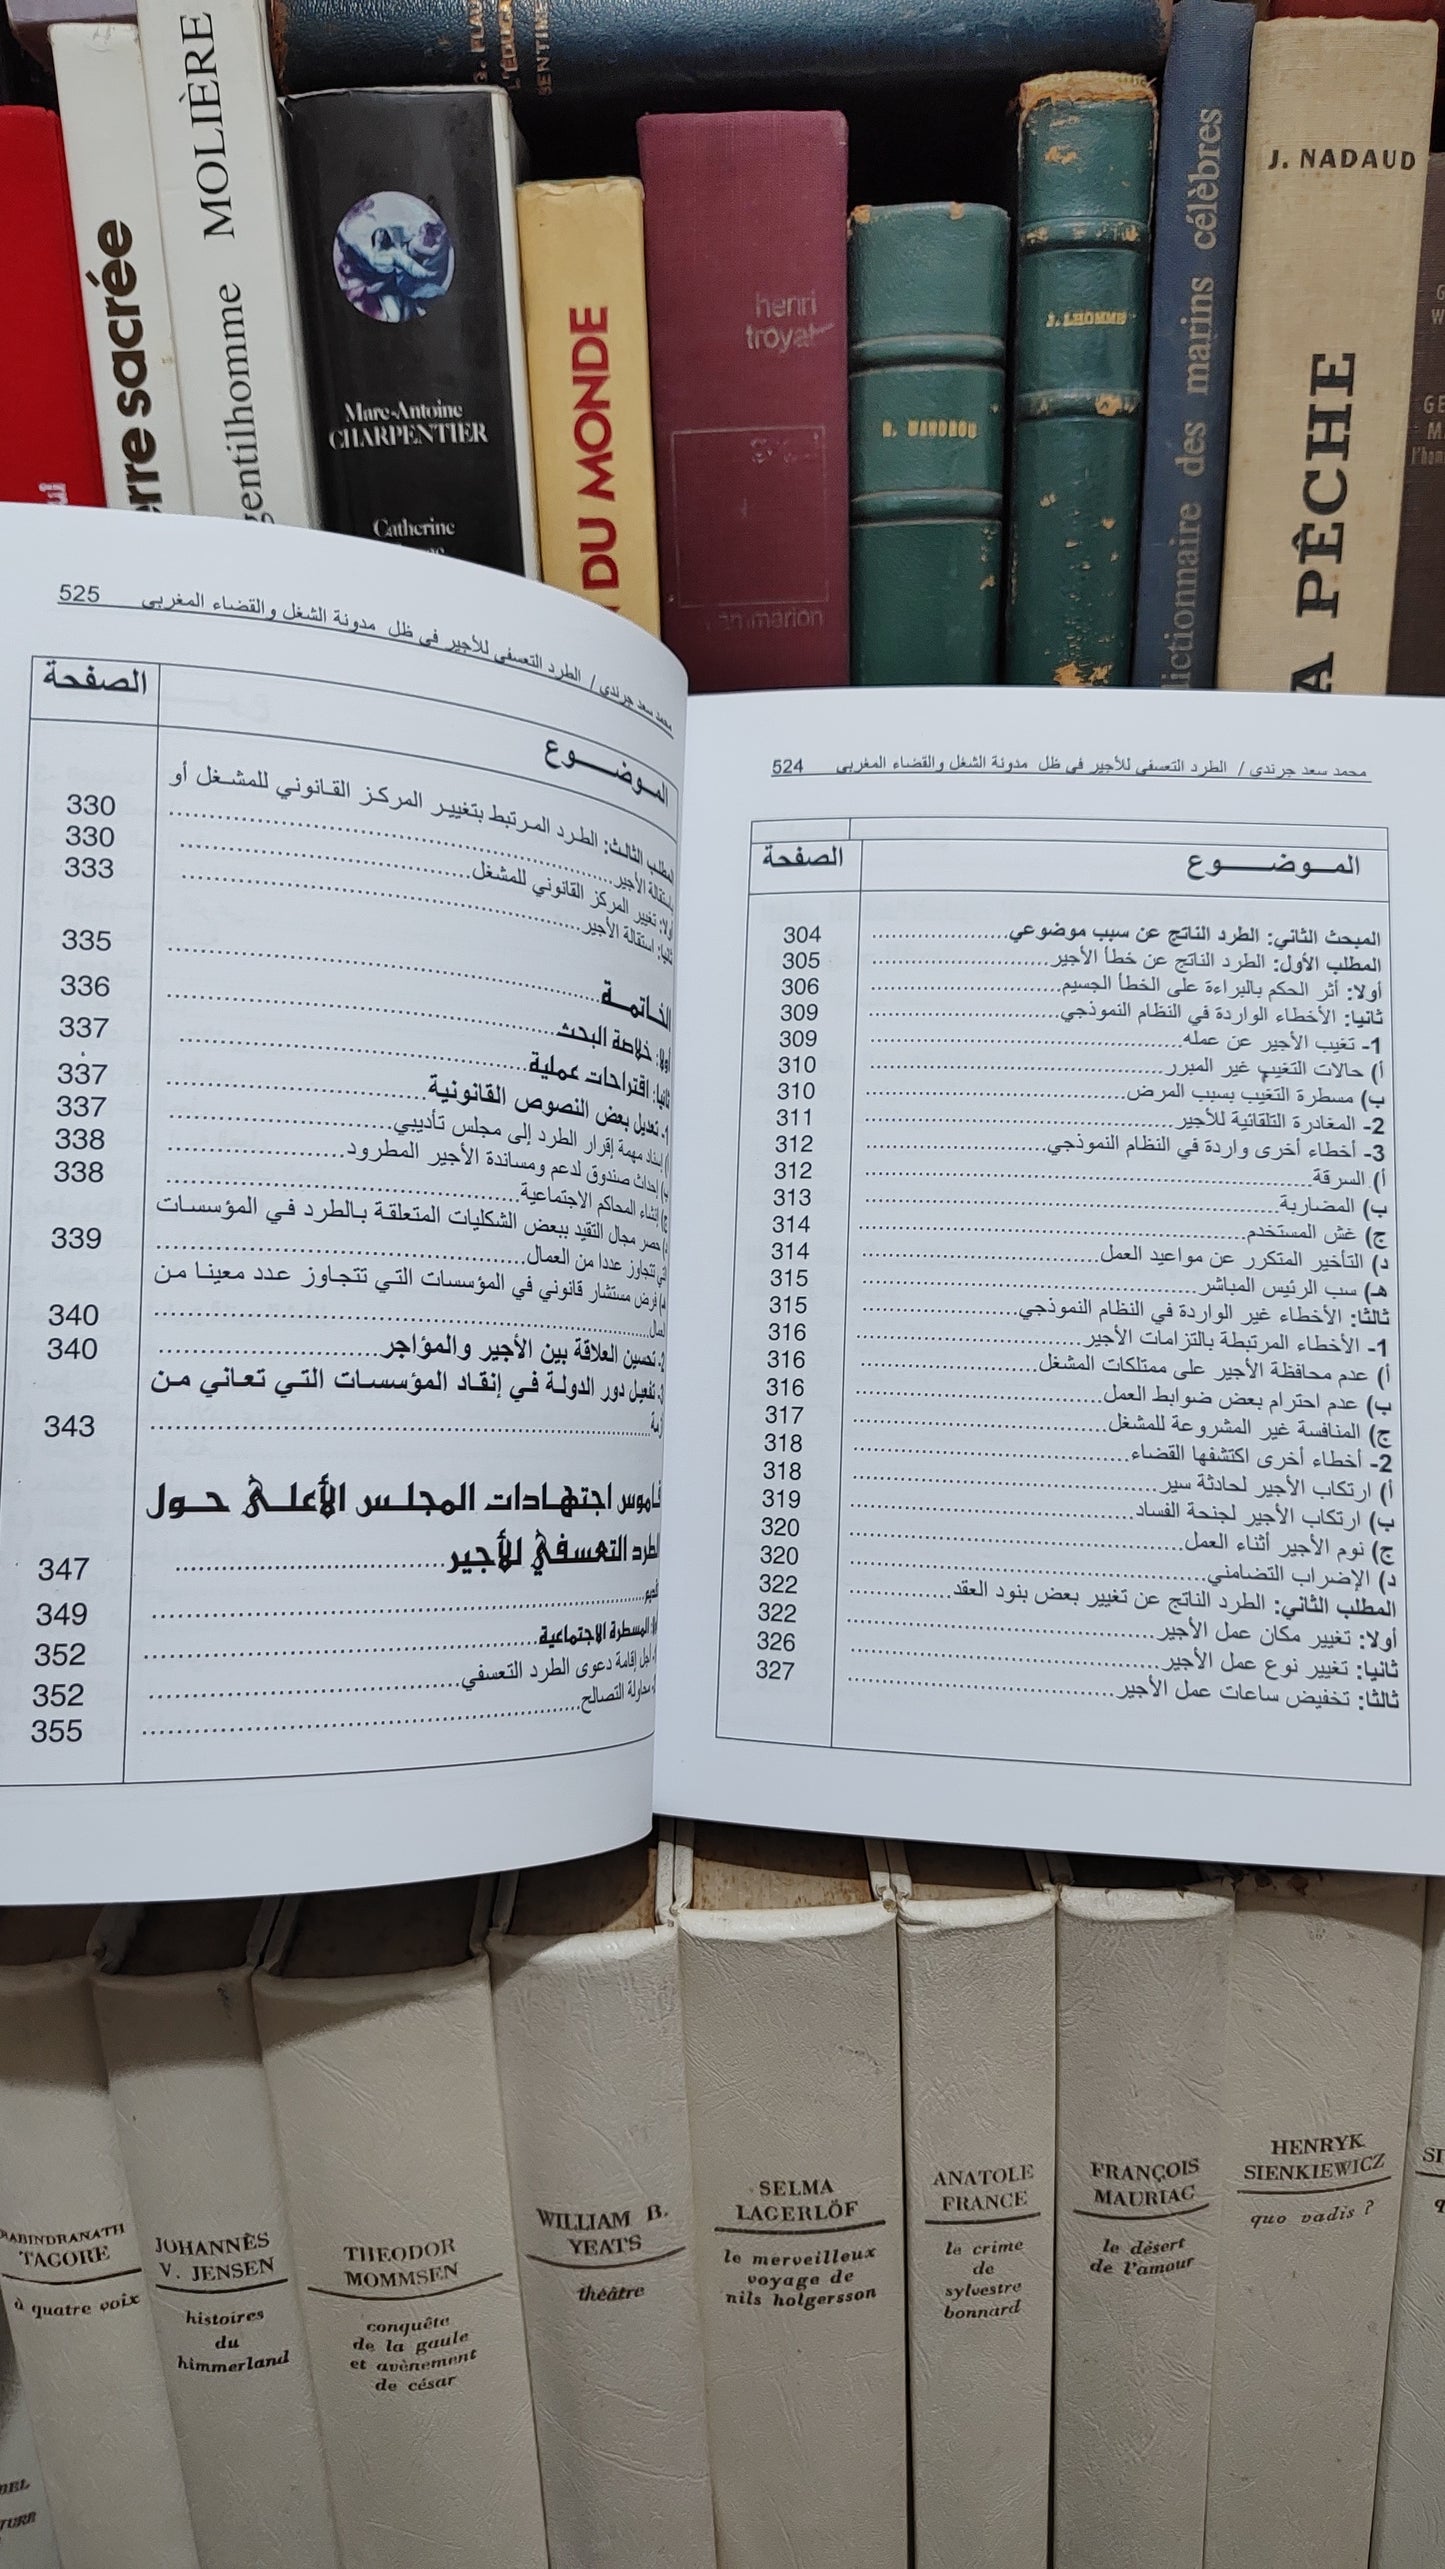 G. FLAU
L'ÉDUCA
SENTIME
erre sacrée
MOLIÈRE
gentilhomme
Marc-Antoine
CHARPENTIER
Catherine
DU MONDE
henri
troyat
flammarion
J. LHOMME
dictionnaire des marins célèbres
J. NADAUD
A PÊCHE
محمد سعد جرندي / الطرد التعسفي للأجير في ظل مدونة الشغل والقضاء المغربي 524
الموضوع الصفحة
المبحث الثاني: الطرد الناتج عن سبب موضوعي 304
المطلب الأول: الطرد الناتج عن خطأ الأجير 305
أولا: أثر الحكم بالبراءة على الخطأ الجسيم 306
ثانيا: الأخطاء الواردة في النظام النموذجي 309
1- تغيب الأجير عن عمله 309
أ) حالات التغيب غير المبرر 310
ب) مسطرة التغيب بسبب المرض 310
2- المغادرة التلقائية للأجير 311
3- أخطاء أخرى واردة في النظام النموذجي 312
أ) السرقة 312
ب) المضاربة 313
ج) غش المستخدم 314
د) التأخير المتكرر عن مواعيد العمل 314
هـ) سب الرئيس المباشر 315
ثالثا: الأخطاء غير الواردة في النظام النموذجي 315
1- الأخطاء المرتبطة بالتزامات الأجير 316
أ) عدم محافظة الأجير على ممتلكات المشغل 316
ب) عدم احترام بعض ضوابط العمل 316
ج) المنافسة غير المشروعة للمشغل 317
2- أخطاء أخرى اكتشفها القضاء 318
أ) ارتكاب الأجير لحادثة سير 318
ب) ارتكاب الأجير لجنحة الفساد 319
ج) نوم الأجير أثناء العمل 320
د) الإضراب التضامني 320
المطلب الثاني: الطرد الناتج عن تغيير بعض بنود العقد 322
أولا: تغيير مكان عمل الأجير 322
ثانيا: تغيير نوع عمل الأجير 326
ثالثا: تخفيض ساعات عمل الأجير 327
محمد سعد جرندي / الطرد التعسفي للأجير في ظل مدونة الشغل والقضاء المغربي 525
الموضوع الصفحة
المطلب الثالث: الطرد المرتبط بتغيير المركز القانوني للمشغل أو
باستقالة الأجير 330
أولا: تغيير المركز القانوني للمشغل 330
ثانيا: استقالة الأجير 333
الخاتمة 335
أولا: خلاصة البحث 336
ثانيا: اقتراحات عملية 337
1- تعديل بعض النصوص القانونية 337
أ) إسناد مهمة إقرار الطرد إلى مجلس تأديبي 337
ب) إحداث صندوق لدعم ومساندة الأجير المطرود 338
ج) إنشاء المحاكم الاجتماعية 338
د) حصر مجال التقيد ببعض الشكليات المتعلقة بالطرد في المؤسسات
التي تتجاوز عددا من العمال 339
هـ) فرض مستشار قانوني في المؤسسات التي تتجاوز عدد معينا من
العمال 340
2- تحسين العلاقة بين الأجير والمؤاجر 340
3- تفعيل دور الدولة في إنقاد المؤسسات التي تعاني من
أزمة 343
قاموس اجتهادات المجلس الأعلى حول
الطرد التعسفي للأجير 347
تقديم 349
أولا: المسطرة الاجتماعية 352
1- أجل إقامة دعوى الطرد التعسفي 352
2- محاولة التصالح 355
RABINDRANATH
TAGORE
à quatre voix
JOHANNÈS
V. JENSEN
histoires
du
himmerland
THEODOR
MOMMSEN
conquête
de la gaule
et avènement
de césar
WILLIAM B.
YEATS
théâtre
SELMA
LAGERLÖF
le merveilleux
voyage de
nils holgersson
ANATOLE
FRANCE
le crime
de
sylvestre
bonnard
FRANÇOIS
MAURIAC
le désert
de l'amour
HENRYK
SIENKIEWICZ
quo vadis ?